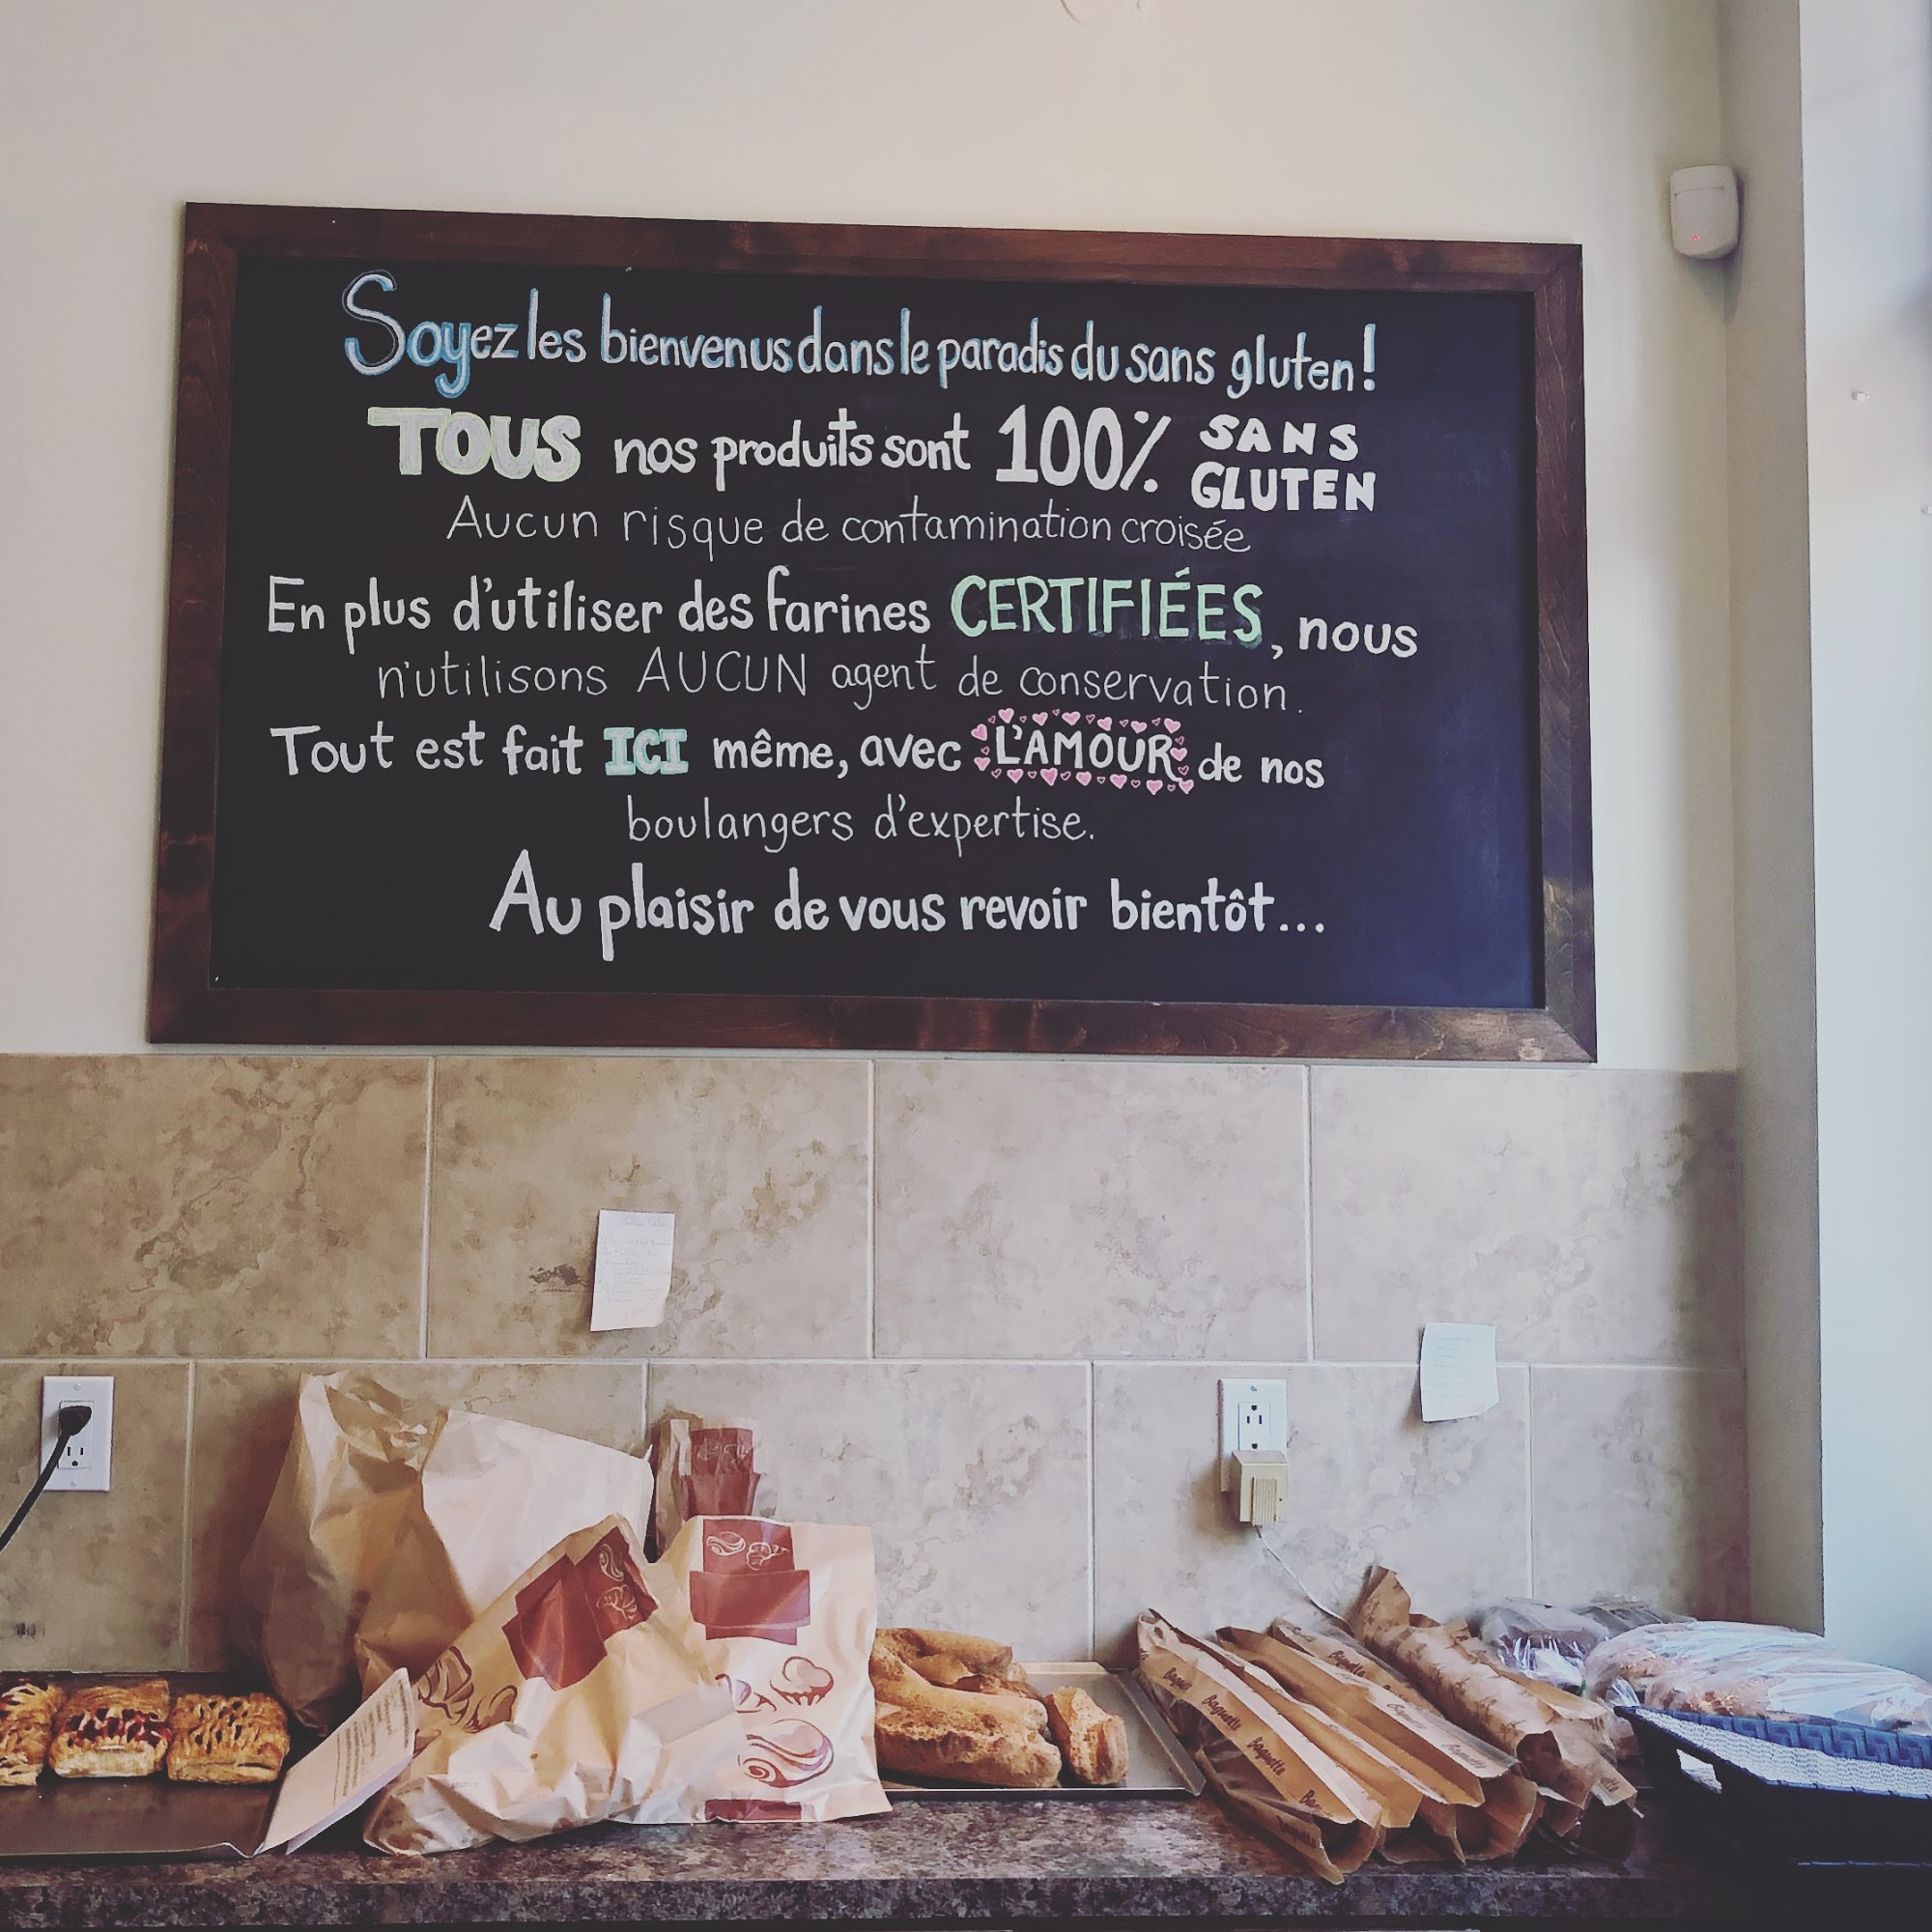 Soyez les bienvenus dans le paradis du sans gluten!
TOUS nos produits sont 100% SANS GLUTEN
Aucun risque de contamination croisée
En plus d'utiliser des farines CERTIFIÉES, nous
n'utilisons AUCUN agent de conservation.
Tout est fait ICI même, avec L'AMOUR de nos
boulangers d'expertise.
Au plaisir de vous revoir bientôt...
Baguette
Baguette
Baguette
Baguette
Baguette